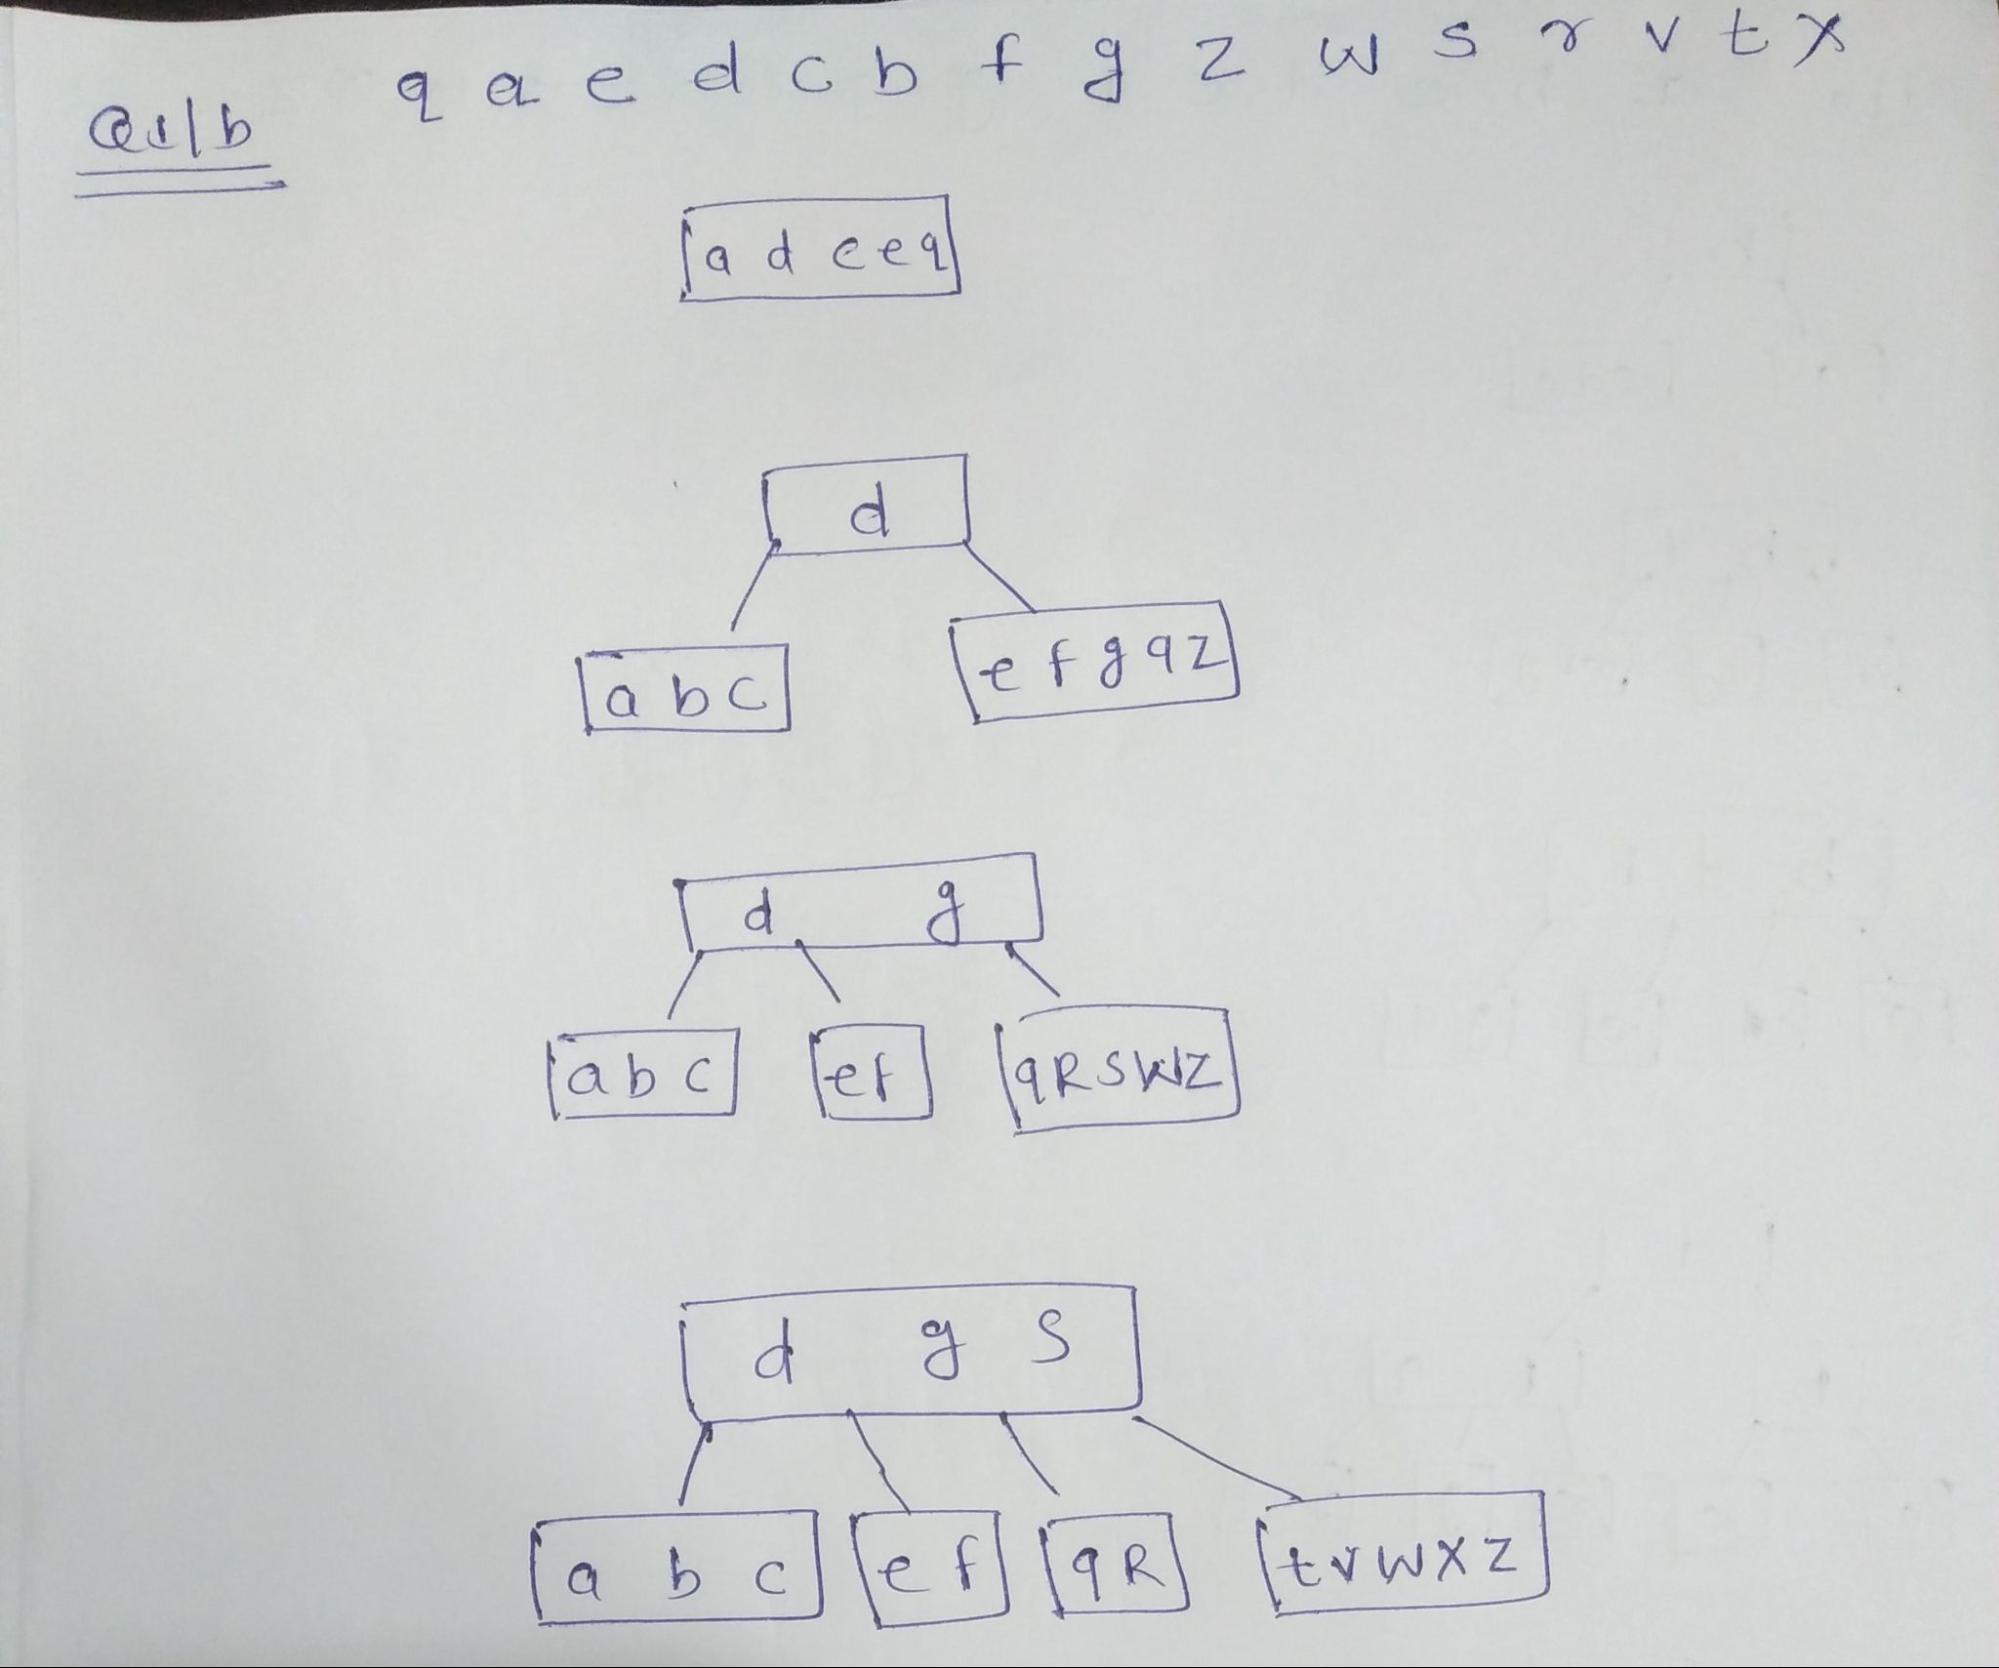 q a e d c b f g z w s r v t x
Q1/b
a d c e q
d
a b c e f g q z
d g
a b c e f q R S W Z
d g S
a b c e f q R t v w x z